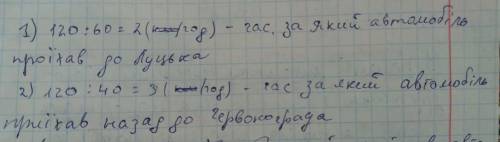 1) 120 : 60 = 2 (км/год) - час, за який автомобіль
проїхав до Луцька
2) 120 : 40 = 3 (км/год) - час за який автомобіль
приїхав назад до Червонограда